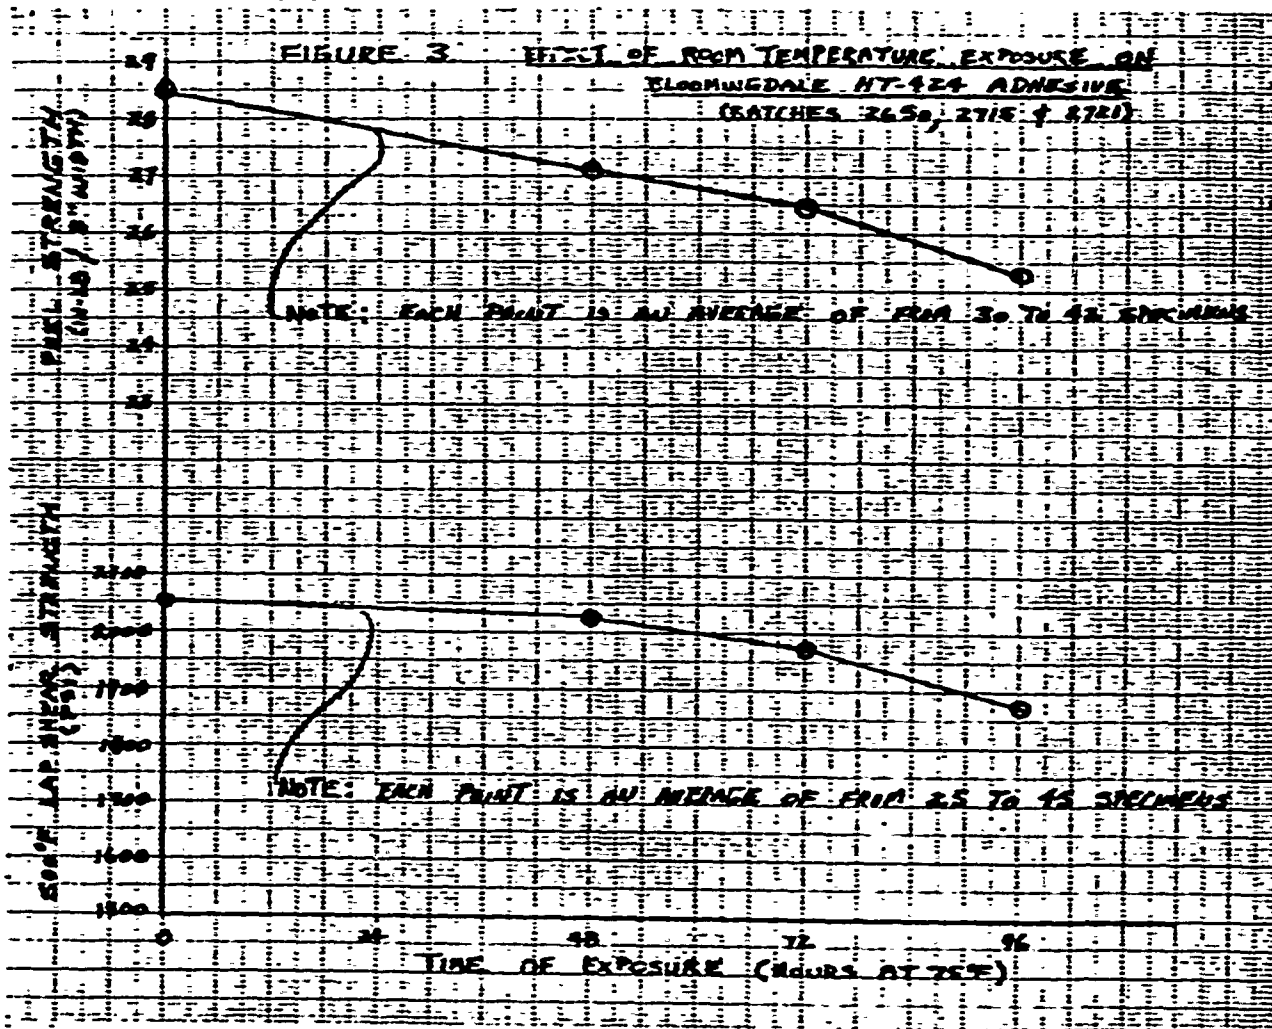 FIGURE 3 EFFECT OF ROOM TEMPERATURE EXPOSURE ON
BLOOMINGDALE HT-424 ADHESIVE
(BATCHES 2650, 2715 & 2721)
PEEL STRENGTH
(IN-LB / 3" WIDTH)
29
28
27
26
25
24
23
NOTE: EACH POINT IS AN AVERAGE OF FROM 30 TO 42 SPECIMENS
500°F LAP SHEAR STRENGTH
(PSI)
2000
1900
1800
1700
1600
1500
NOTE: EACH POINT IS AN AVERAGE OF FROM 25 TO 45 SPECIMENS
0 24 48 72 96
TIME OF EXPOSURE (HOURS AT 75°F)